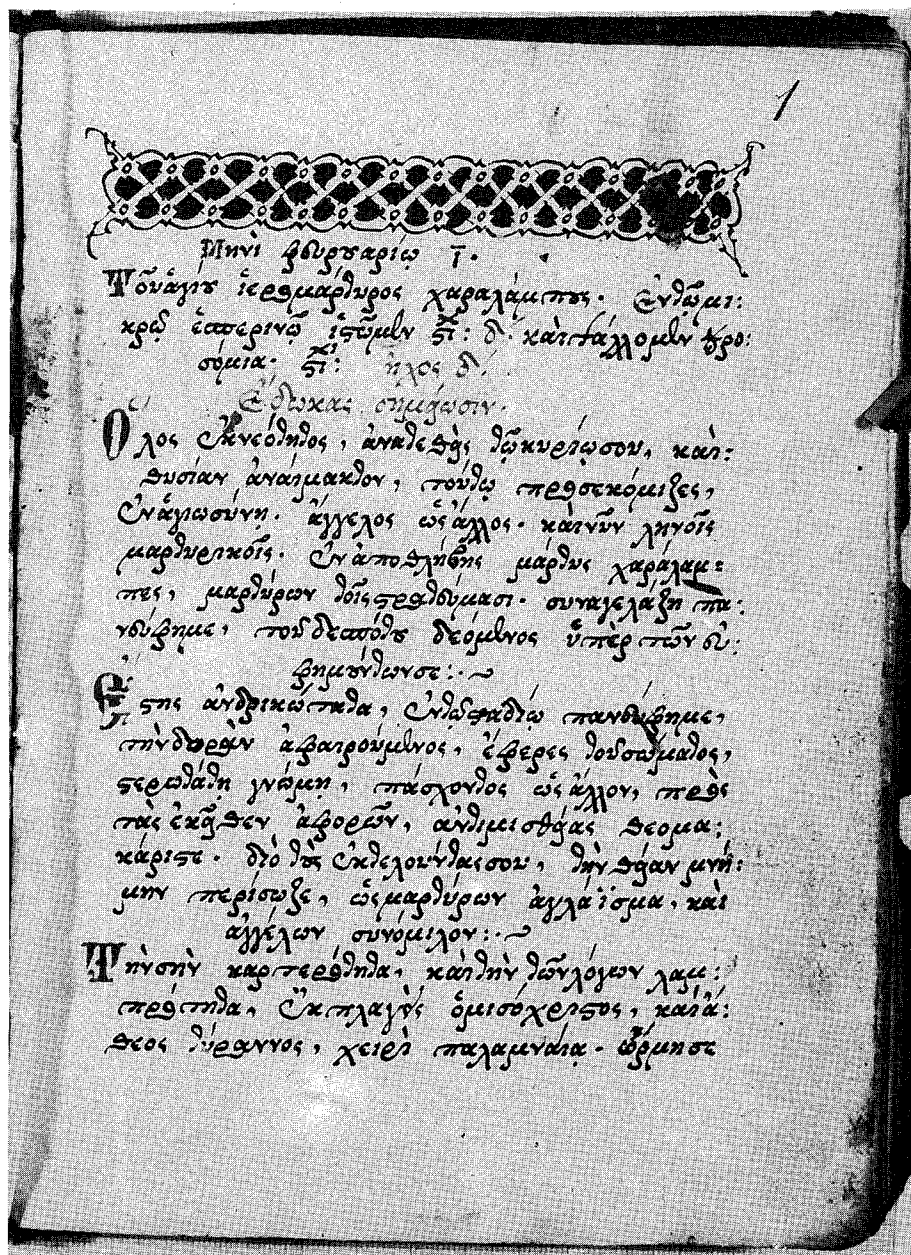 1
Μηνὶ φευρουαρίῳ ῑ.
Τοῦ ἁγίου ἱερομάρτυρος χαραλάμπους. Ἐν τῷ μι:
κρῷ ἑσπερινῷ ἱστῶμεν στί: δ΄. καὶ ψάλλομεν προσ:
σόμια. στί: ἦχος δ΄.
Ἔδωκας σημείωσιν.
Ὅλος ἐκ νεότητος, ἀνατεθεὶς τῷ κυρίῳ σου, καὶ:
θυσίαν ἀναίμακτον, τούτῳ προσεκόμιζες,
ἐν ἁγιωσύνῃ. ἄγγελος ὡς ἄλλος. καὶ νῦν ληνοῖς
μαρτυρικοῖς. ἐναποθλίβεις μάρτυς χαράλαμ:
πες, μαρτύρων τοῖς στρατεύμασι. συναγελάζῃ πα:
νεύφημε, τοῦ δεσπότου δεόμενος ὑπὲρ τῶν εὐ:
φημούντων σε:.~
Ἔστης ἀνδρικώτατα, ἐν τῷ σταδίῳ πανεύφημε,
τὴν δορὰν ἀφαιρούμενος, ἔφερες τοῦ σώματος,
στερωτάτῃ γνώμῃ, πάσχοντος ὡς ἄλλου, πρὸς
τὰς ἐκεῖθεν ἀφορῶν, ἀντιμισθείας θεομα:
κάριστε. διὸ τοὺς ἐκτελοῦντάς σου, τὴν θείαν μνή:
μην περίσωζε, ὡς μαρτύρων ἀγλάϊσμα, καὶ
ἀγγέλων συνόμιλον:.~
Τὴν σὴν καρτερότητα, καὶ τὴν τῶν λόγων λαμ:
πρότητα, ἐκπλαγεὶς ὁ μισόχριστος, καὶ ἄ:
θεος τύραννος, χειρὶ παλαμναίᾳ. ὥρμησε